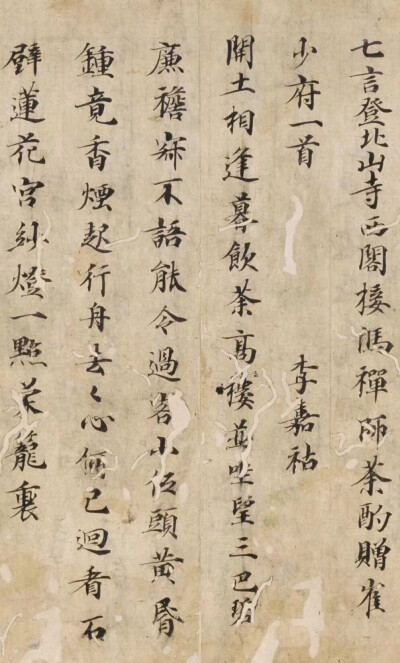 七言登北山寺西閣接馮禪師茶酌贈雀
少府一首 李嘉祐
開士相逢暮飲茶高樓並坐望三巴
廉襜寂不語能令過客小伍頭黃昏
鍾竟香煙起行舟去々心何已迴看石
壁蓮花宮紗燈一點在籠裏